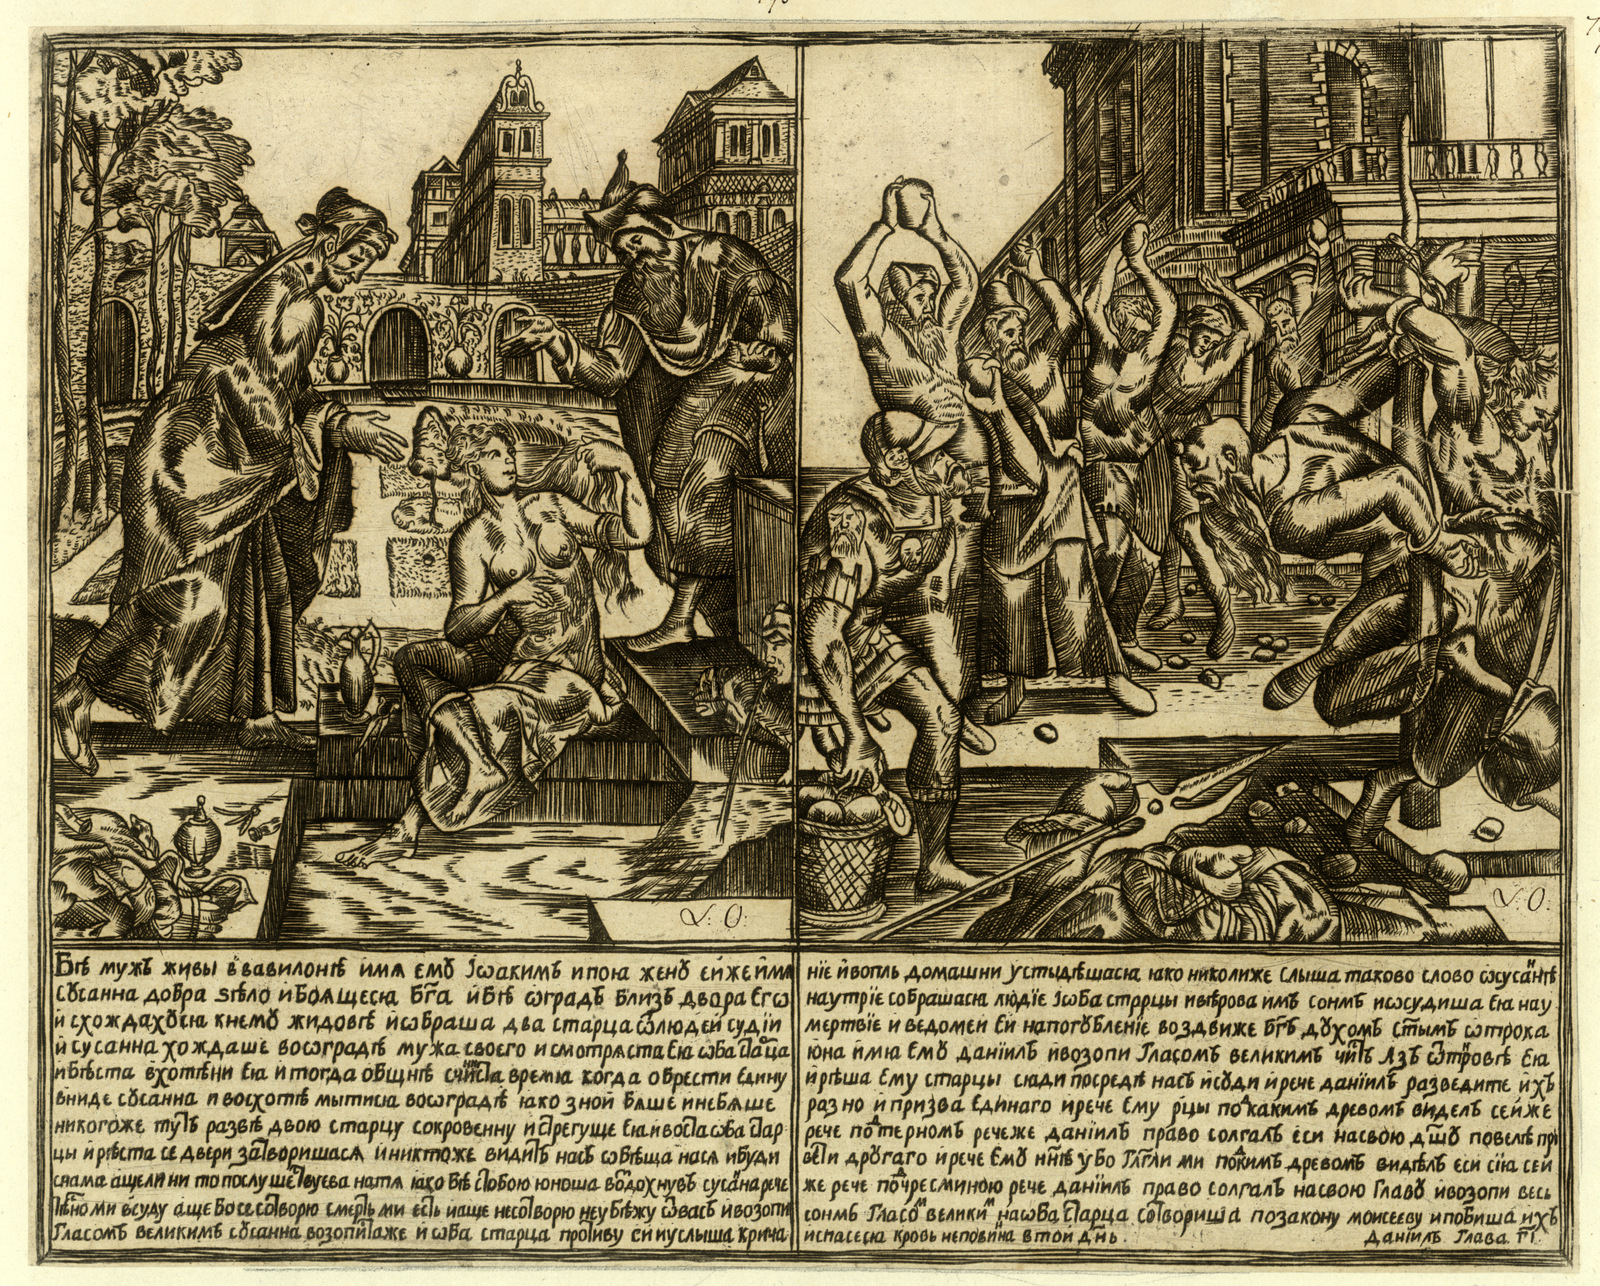 Л: О:
Л: О:
Бѣ мужъ живы в вавилонѣ имя емȣ Іѡакимъ и поя женȣ ей же имя
сȣсанна добра ѕѣло и боящеся б҃га и бѣ ѡградъ близъ двора его
и схождахȣся к немȣ жидовѣ и собраша два старца ѿ людей судіи
и сусанна хождаше во ѡградѣ мужа своего и смотряста ею ѡба старца
и бѣста в хотѣни ею и тогда ѡбщнѣ времѧ когда обрести едину
вниде сȣсанна и восхотѣ мытися во ѡградѣ яко зной бяше и не бяше
никогоже тутъ развѣ двою старцу сокровенну и стрегуще ею и воста ѡба стар
цы и рѣста се двери затворишася и никтоже видитъ насъ ѡбѣща нася и буди
снама аще ли ни то послушествуева на тя яко бѣ с тобою юноша воздохнувъ сусана рече
тѣсно ми всуду аще бо се сотворю смерть ми есть и аще не сотворю не убѣжу ѿ васъ и возопи
гласомъ великимъ сȣсанна возопиша же и ѡба старца противу еи и услыша крича
ніе и вопль домашни устыдѣшася яко николиже слыша таково слово ѡ сусанѣ
на утріе собрашася людіе ѡба старцы и вѣрова имъ сонмъ и осудиша ею на у
мертвіе и ведомей ей на погубленіе воздвиже б҃гъ дȣхомъ с҃тымъ ѡтрока
юна имя емȣ даніилъ и возопи гласомъ великимъ чистъ азъ ѿ кровѣ ею
и рѣша ему старцы сяди посредѣ насъ и суди и рече даніилъ разведите ихъ
разно и призва единаго и рече ему рцы под какимъ древомъ виделъ сей же
рече под терномъ рече же даніилъ право солгалъ еси на свою д҃шȣ повелѣ при
вести другаго и рече емȣ нн҃ѣ убо гл҃гли ми под кимъ древомъ видѣлъ еси сіа сей
же рече под чресминою рече даніилъ право солгалъ на свою главȣ и возопи весь
сонмъ гласом великим на ѡба старца сотвориша по закону моисееву и побиша ихъ
и спасеся кровь неповина в той днь.
Даніилъ Глава гі